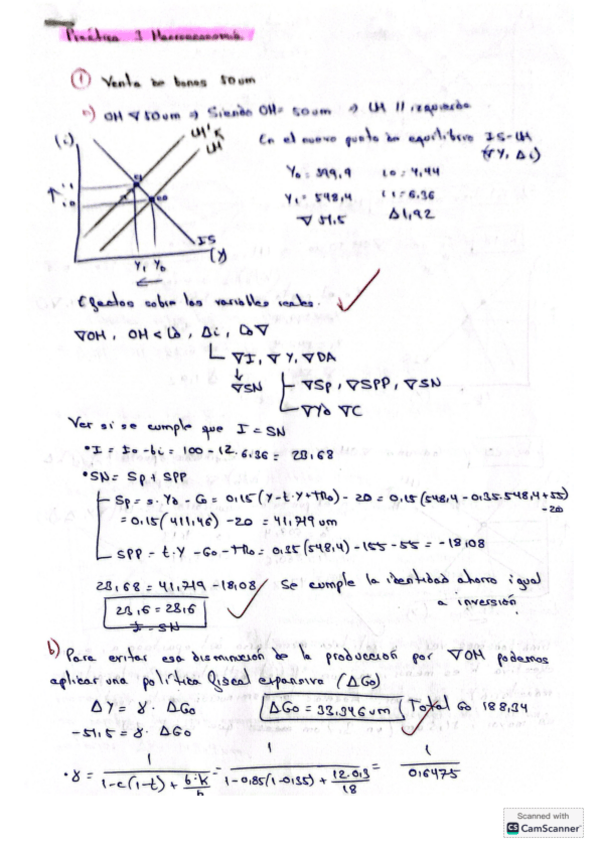 Práctica 1 Macroeconomía
① Venta de bonos 50um
a) OH ∇ 50um ⇒ Siendo OH = 50um ⇒ LM // izquierda
(i) LM' LM
En el nuevo punto de equilibrio IS-LM
(∇Y, Δi)
Y₀ = 599,9 i₀ = 4,44
Y₁ = 548,4 i₁ = 6,36
∇ 51,5 Δ1,92
i₁
i₀
IS
Y₁ Y₀ (Y)
Efectos sobre las variables reales.
∇OH, OH < LD, Δi, LD∇
∇I, ∇Y, ∇DA
∇SN ∇Sp, ∇SPP, ∇SN
∇Yd ∇C
Ver si se cumple que I = SN
• I = I₀ - bi = 100 - 12 · 6,36 = 23,68
• SN = Sp + SPP
Sp = s · Yd - C₀ = 0,15(Y - t·Y + TR₀) - 20 = 0,15(548,4 - 0,35·548,4 + 55) - 20
= 0,15(411,46) - 20 = 41,719 um
SPP = t·Y - G₀ - TR₀ = 0,35(548,4) - 155 - 55 = -18,08
23,68 = 41,719 - 18,08 Se cumple la identidad ahorro igual
23,6 = 23,6 a inversión
I = SN
b) Para evitar esa disminución de la producción por ∇OH podemos
aplicar una política fiscal expansiva (ΔG₀)
ΔY = γ · ΔG₀ ΔG₀ = 33,346 um Total G₀ 188,34
-51,5 = γ · ΔG₀
• γ = 1 / (1 - c(1-t) + b·k/h) = 1 / (1 - 0,85(1 - 0,35) + 12·0,3/18) = 1 / 0,6475
Scanned with
CS CamScanner